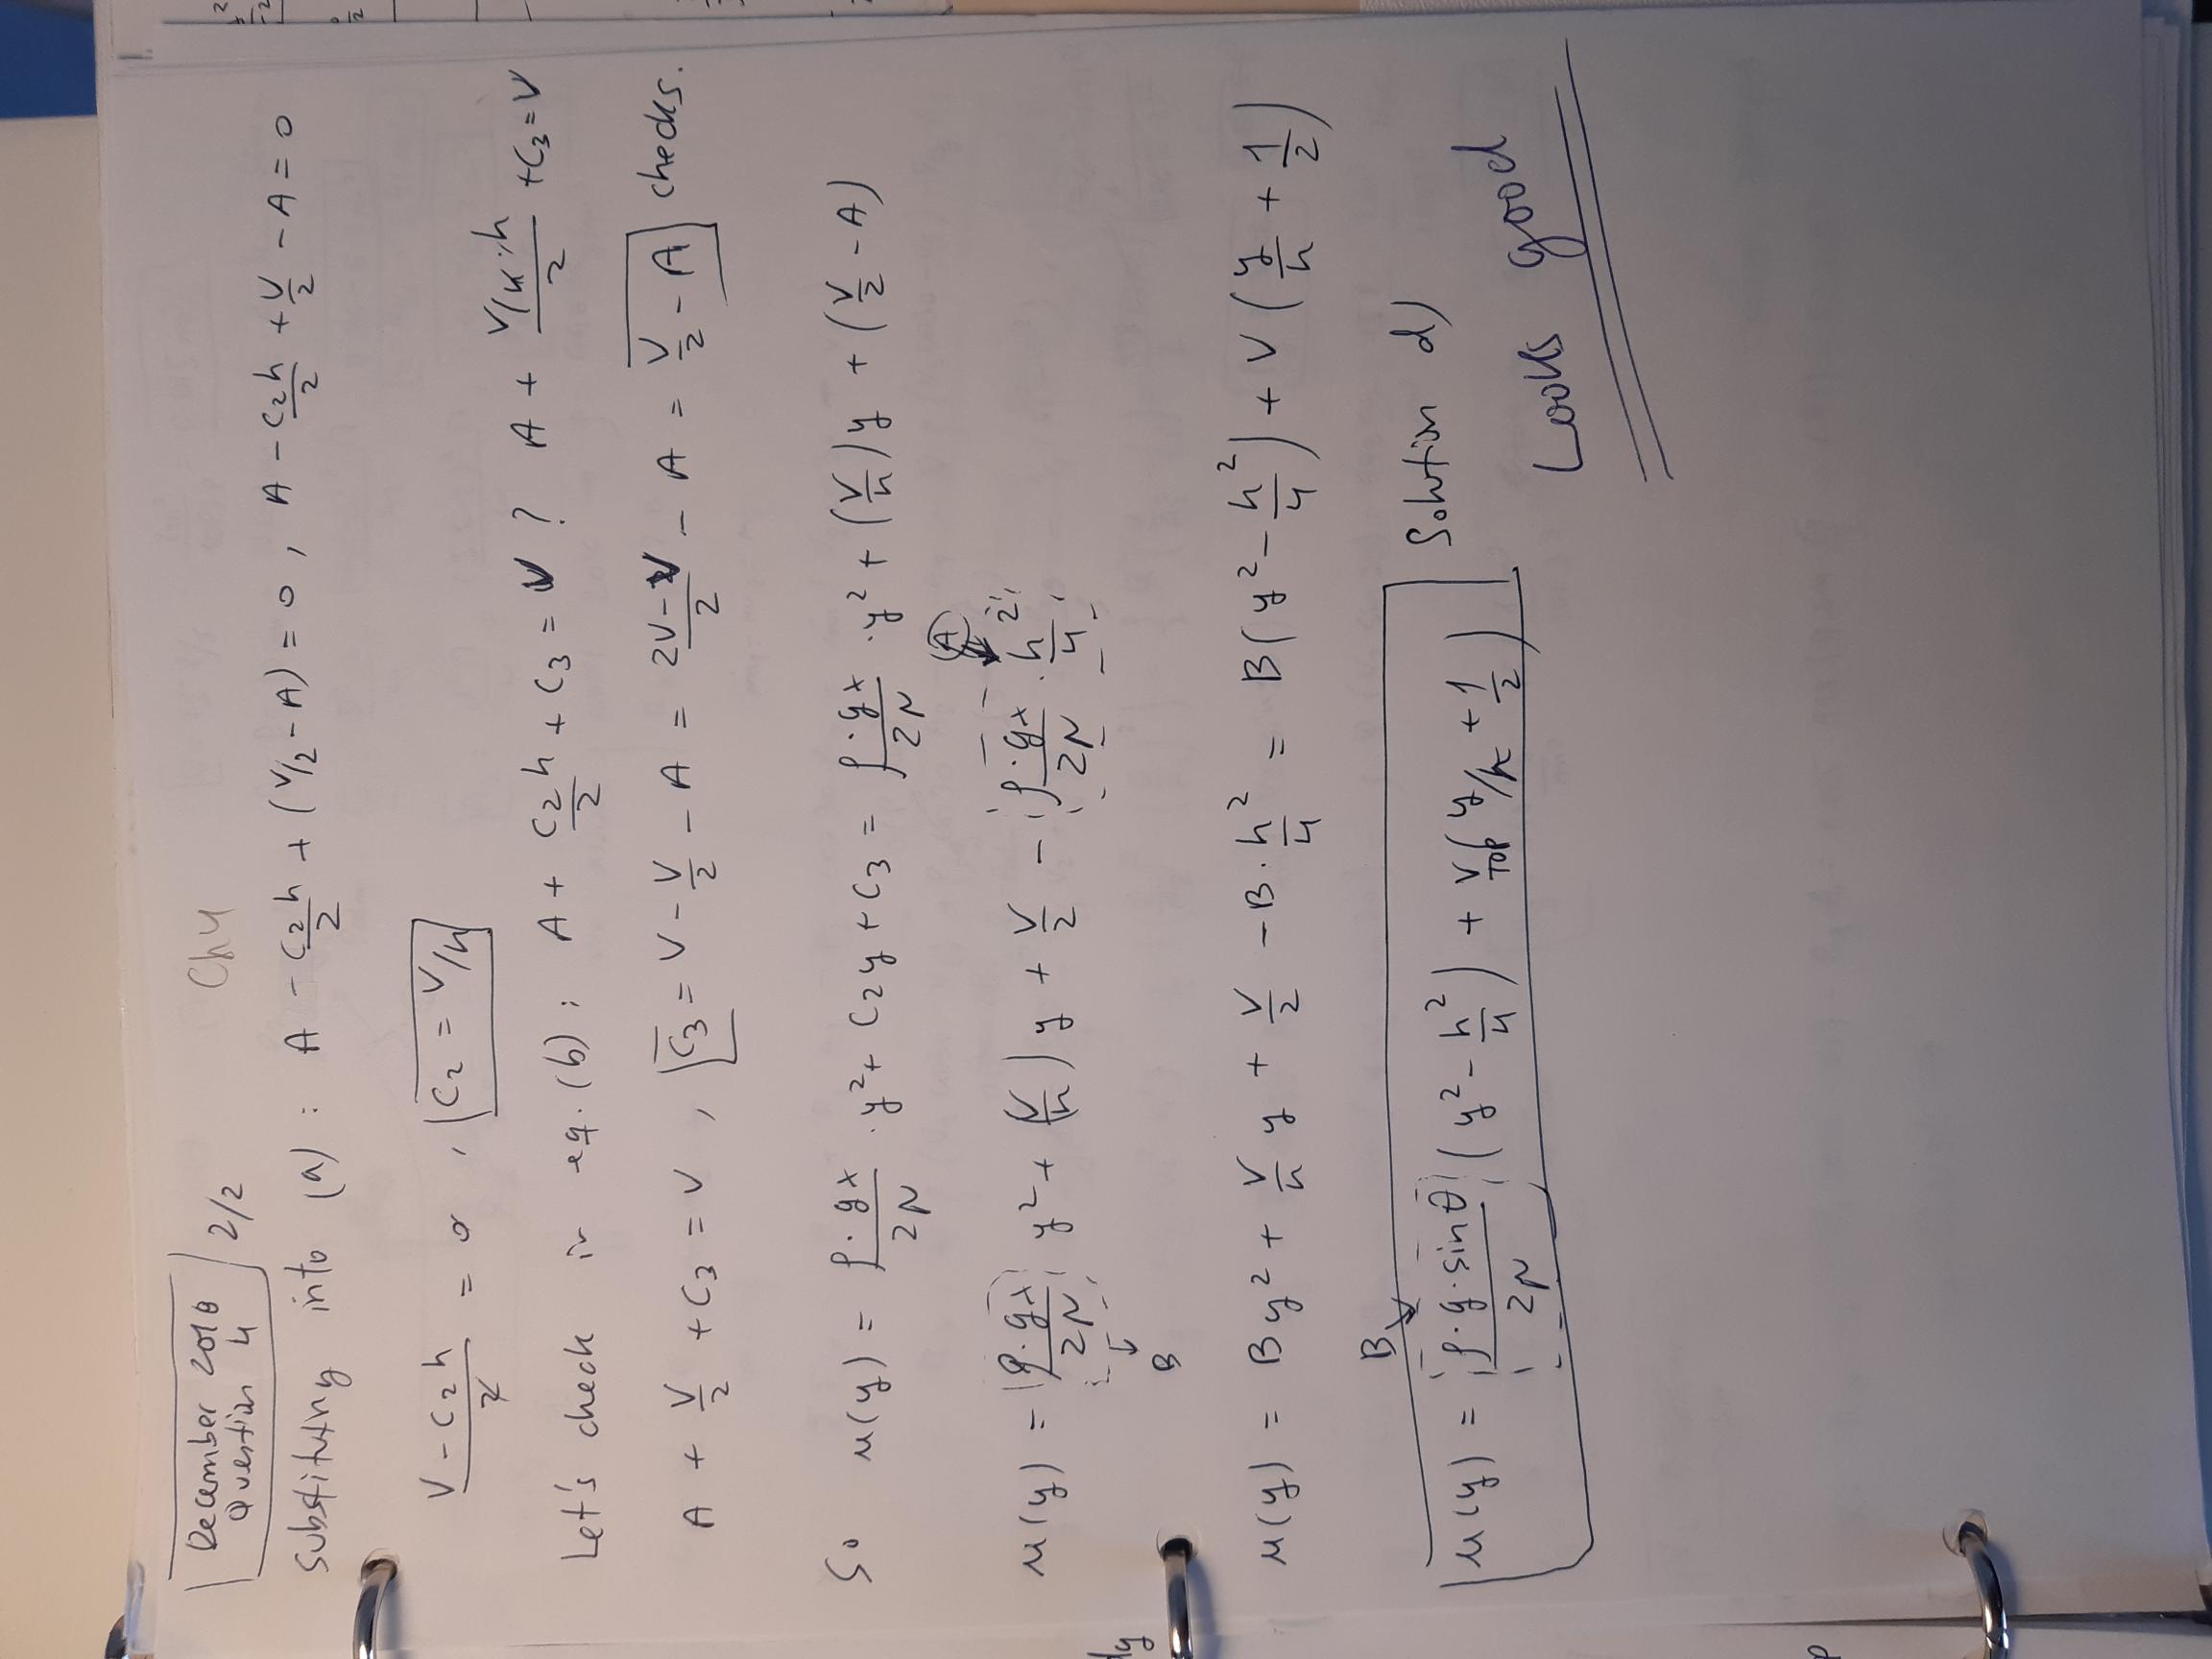 December 2018
Question 4
2/2
Ch4
substituting into (a) : A - C₂h/2 + (V/2 - A) = 0 , A - C₂h/2 + V/2 - A = 0
(V - C₂h)/2 = 0 , C₂ = V/h
Let's check in eq. (b) : A + C₂h/2 + C₃ = V ? A + (V/h·h)/2 + C₃ = V
A + V/2 + C₃ = V , C₃ = V - V/2 - A = (2V - V)/2 - A = V/2 - A checks.
So u(y) = ρ·gx/2μ · y² + C₂y + C₃ = ρ·gx/2μ · y² + (V/h)y + (V/2 - A)
A
u(y) = ρ·gx/2μ y² + (V/h)y + V/2 - ρ·gx/2μ · h²/4
↓
B
u(y) = By² + V/h y + V/2 - B·h²/4 = B(y² - h²/4) + V(y/h + 1/2)
B
u(y) = ρ·g·sinθ/2μ (y² - h²/4) + V TOP (y/h + 1/2) Solution d)
Looks good